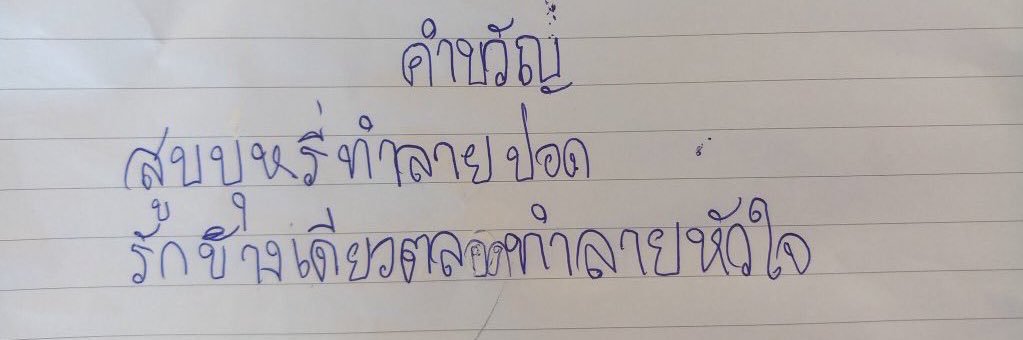 คำขวัญ
สูบบุหรี่ทำลายปอด
รักข้างเดียวตลอดทำลายหัวใจ